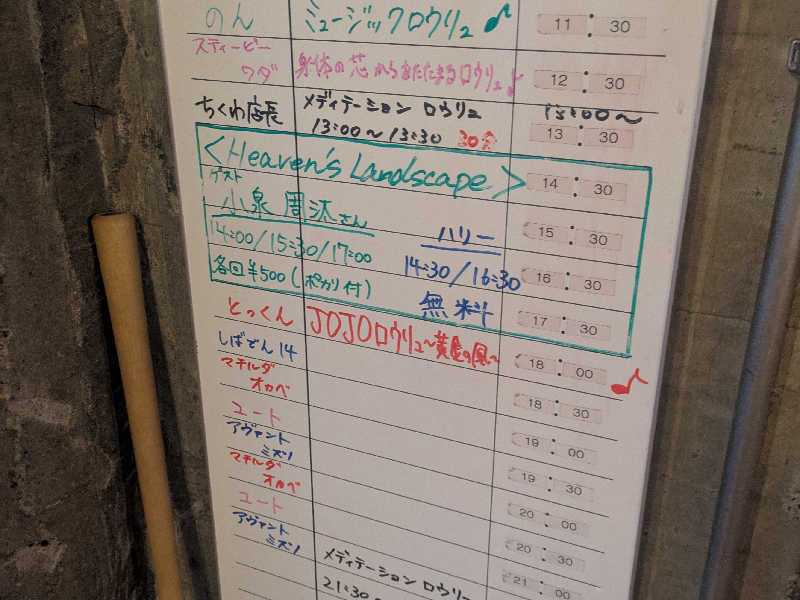 のん ミュージックロウリュ♪ 11:30
スティービー
ワダ 身体の芯からあたたまるロウリュ♪ 12:30
ちくわ店長 メディテーション ロウリュ 13:00〜
13:00〜13:30 30分 13:30
<Heaven's Landscape> 14:30
ゲスト
小泉 周沐さん ハリー 15:30
14:00/15:30/17:00 14:30/16:30 16:30
各回¥500(ポカリ付) 無料 17:30
とっくん JOJOロウリュ〜黄金の風〜 18:00 ♪
しばでん14
マチルダ
オカベ 18:30
ユート 19:00
アヴァント
ミズノ
マチルダ 19:30
オカベ
ユート 20:00
アヴァント
ミズノ 20:30
メディテーション ロウリュ 21:00
21:30〜